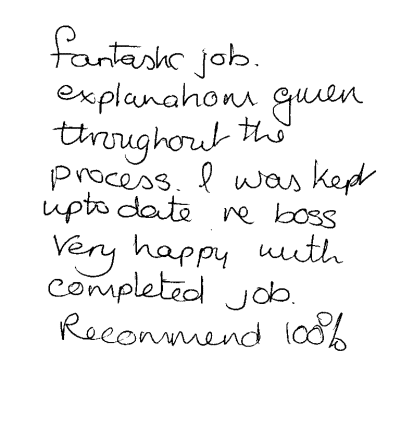 fantastic job.
explanations given
throughout the
process. I was kept
upto date re boss
very happy with
completed job.
Recommend 100%